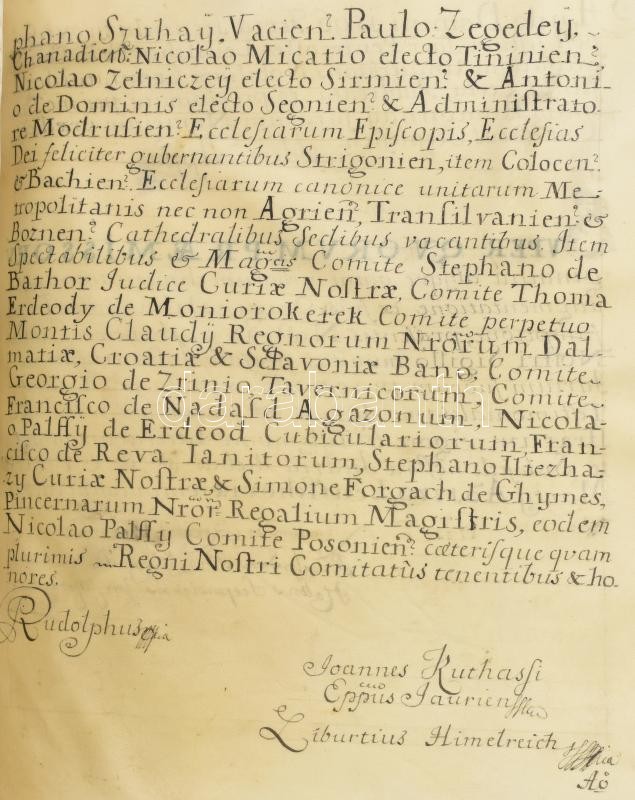 phano Szuhaÿ, Vacien? Paulo Zegedeÿ,
Chanadien?: Nicolao Micatio electo Tininien?,
Nicolao Zelniczeÿ electo Sirmien? & Antoni-
o de Dominis electo Segnien? & Administrato-
re Modrusien? Ecclesiarum Episcopis, Ecclesias
Dei feliciter gubernantibus Strigonien, item Colocen?
& Bachien? Ecclesiarum canonice unitarum Me-
tropolitanis nec non Agrien?, Transilvanien? &
Boznen? Cathedralibus Sedibus vacantibus. Item
Spectabilibus & Magcis Comite Stephano de
Bathor Judice Curiæ Nostræ, Comite Thoma
Erdeody de Moniorokerek Comite perpetuo
Montis Claudÿ Regnorum Nrõrum Dal-
matiæ, Croatiæ & Sclavoniæ Bano, Comite
Georgio de Zrinio Tavernicorum, Comite
Francisco de Nadasd Agazonum, Nicola-
o Palffÿ de Erdeod Cubiculariorum, Fran-
cisco de Reva Ianitorum, Stephano Iliezha-
zy Curiæ Nostræ, & Simone Forgach de Ghymes,
Pincernarum Nrõr? Regalium Magistris, eodem
Nicolao Palffy Comite Posonien?. cæterisque quam
plurimis Regni Nostri Comitatûs tenentibus & ho-
nores.
Rudolphus
Joannes Kuthassi
Eppûs Jaurien
Liburtius Himelreich
Aõ
darabanth